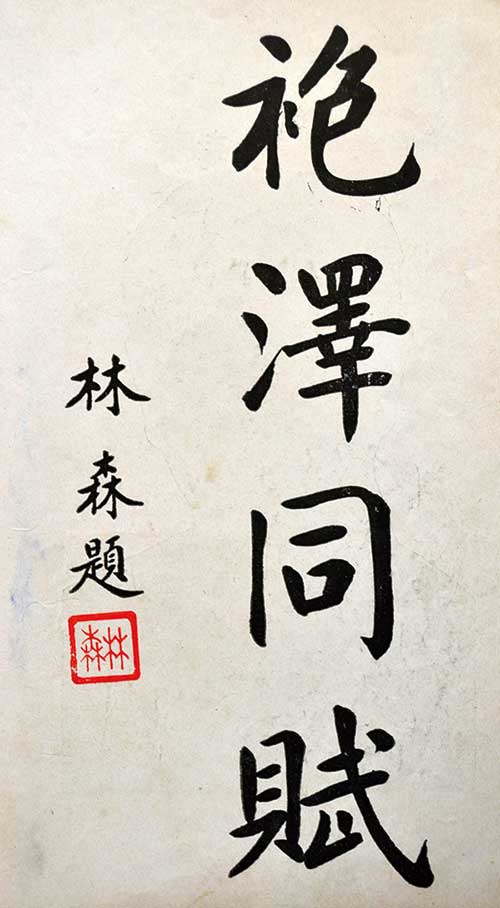 袍澤同賦
林森題
林森